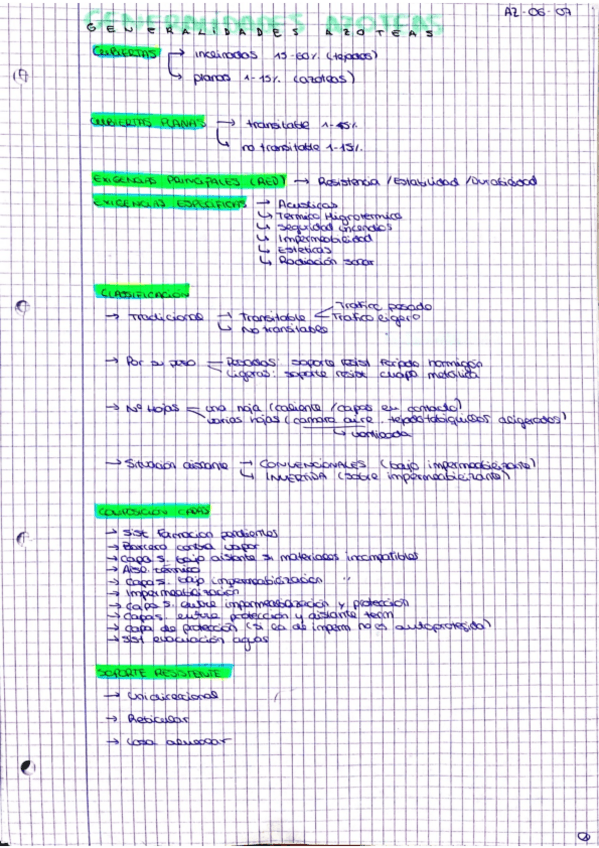 AZ-06-07
GENERALIDADES AZOTEAS
GENERALIDADES AZOTEAS
CUBIERTAS → inclinadas 15-60% (tejados)
→ planas 1-15% (azoteas)
CUBIERTAS PLANAS → transitable 1-5%
→ no transitable 1-15%
EXIGENCIAS PRINCIPALES (RED) → Resistencia /Estabilidad /Durabilidad
EXIGENCIAS ESPECIFICAS → Acusticas
→ Termico Higrotermico
→ Seguridad incendios
→ Impermeabilidad
→ Esteticas
→ Radiación solar
CLASIFICACION
Trafico pesado
→ Tradicional → Transitable Trafico ligero
→ No transitables
→ Por su peso Pesadas: soporte resist forjado hormigón
Ligeras: soporte resist chapa metalica
→ Nº Hojas una hoja (caliente /capas en contacto)
varias hojas (camara aire. tejado tabiquillos aligerados)
→ ventilada
→ Situación aislante → CONVENCIONALES (bajo impermeabilizante)
→ INVERTIDA (sobre impermeabilizante)
COMPOSICION CAPAS
→ Sist formacion pendientes
→ Barrera contra vapor
→ Capa S. bajo aislante si materiales incompatibles
→ Aisl. termico
→ Capa S. bajo impermeabilización "
→ Impermeabilización
→ Capa S. entre impermeabilización y protección
→ Capa S. entre protección y aislante term
→ Capa de protección (si la de imperm no es autoprotegida)
→ Sist evacuación aguas
SOPORTE RESISTENTE
→ Unidireccional
→ Reticular
→ Losa alveolar